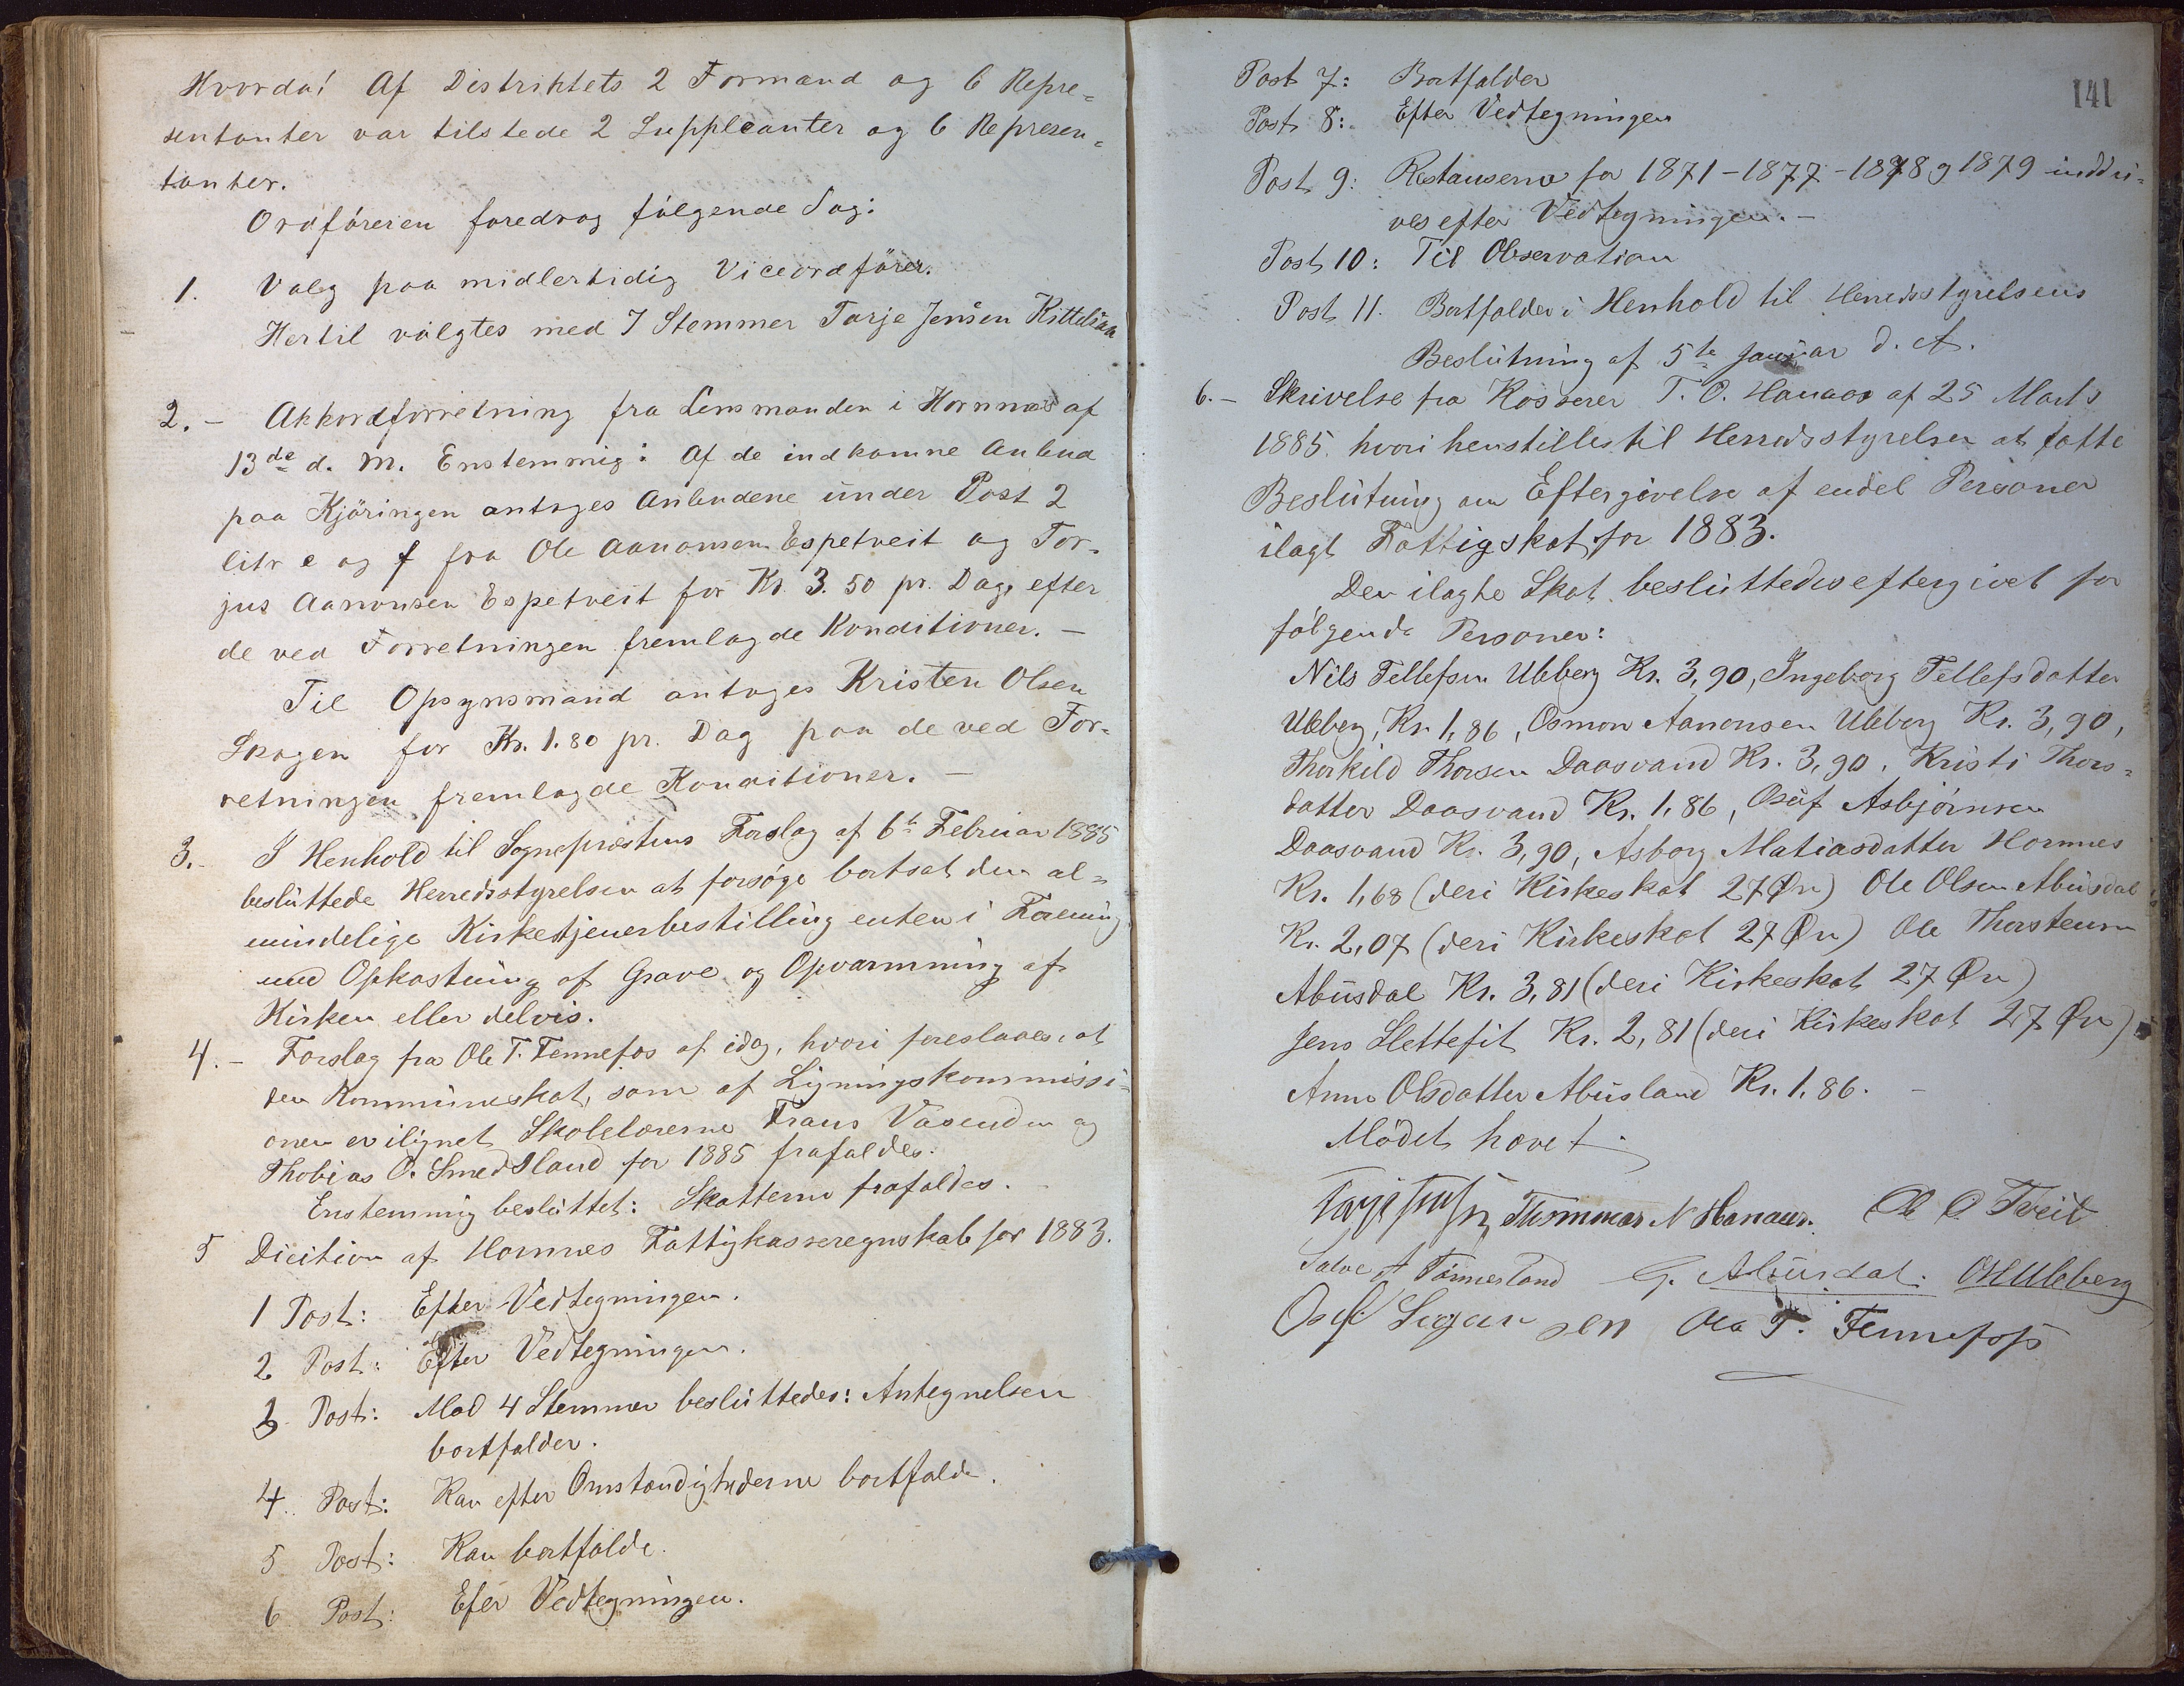 Hvorda! Af Distriktets 2 Formænd og 6 Repre=
sentanter var tilstede 2 Suppleanter og 6 Represen=
tanter.
Ordføreren foredrog følgende Sag:
1. Valg paa midlertidig Viceordfører.
Hertil valgtes med 7 Stemmer Tarje Jensen Kittelsaa
2. - Akkordforretning fra Lensmanden i Hornnæs af
13de d. M. Enstemmig: Af de indkomne Anbud
paa Kjøringen antages Anbudene under Post 2
litr e og f fra Ole Aanonsen Espetveit og Tor-
jus Aanonsen Espetveit for Kr. 3.50 pr. Dag, efter
de ved Forretningen fremlagde Konditioner. -
Til Opsynsmand antages Kristen Olsen
Skogen for Kr. 1.80 pr. Dag paa de ved For-
retningen fremlagde Konditioner. -
3. - I Henhold til Sognepræstens Forslag af 6te Februar 1885
besluttede Herredsstyrelsen at forsøge bortsat den al=
mindelige Kirketjenerbestilling enten i Forening
med Opkastning af Grave og Opvarmning af
Kirken eller delvis.
4. - Forslag fra Ole T. Fennefos af idag, hvori foreslaaes, at
den Kommuneskat, som af Ligningskommissi-
onen er ilignet Skolelærerne Frans Vasenden og
Thobias O. Smedsland for 1885 frafaldes.
Enstemmig besluttet: Skatterne frafaldes.
5 Dicition af Hornnes Fattigkasseregnskab for 1883.
1 Post: Efter Vedtegningen.
2 Post: Efter Vedtegningen.
3. Post: Mod 4 Stemmer besluttedes: Antegnelsen
bortfalder.
4. Post: Kan efter Omstændighederne bortfalde.
5 Post: Kan bortfalde.
6 Post: Efer Vedtegningen.
141
Post 7: Bortfalder
Post 8: Efter Vedtegningen
Post 9: Restanserne for 1871 - 1877 - 1878 g 1879 inddri=
ves efter Vedtegningen. -
Post 10: Til Observation
Post 11. Bortfalder i Henhold til Herredsstyrelsens
Beslutning af 5te Januar d. A.
6. - Skrivelse fra Kasserer T. O. Hanaas af 25 Marts
1885 hvori henstilles til Herredsstyrelsen at fatte
Beslutning om Eftergivelse af endel Personer
ilagt Fattigskat for 1883.
Den ilagte Skat besluttedes eftergivet for
følgende Personer:
Nils Tellefsen Uleberg Kr. 3,90, Ingeborg Tellefsdatter
Uleberg, Kr. 1,86, Osmon Aanonsen Uleberg Kr. 3,90,
Thorkild Thorsen Daasvand Kr. 3,90, Kristi Thors=
datter Daasvand Kr. 1,86, Osuf Asbjørnsen
Daasvand Kr. 3,90, Asborg Matiasdatter Hornnes
Kr. 1,68 (deri Kirkeskat 27 Øre) Ole Olsen Abusdal
Kr. 2,07 (deri Kirkeskat 27 Øre) Ole Thorstensen
Abusdal Kr. 3,81 (deri Kirkeskat 27 Øre)
Jens Slettefit Kr. 2,81 (deri Kirkeskat 27 Øre)
Anne Olsdatter Abusland Kr. 1.86. -
Mødet hævet.
Thommas N Hanaas. Ole O. Tveit
Salve A Tønnesland G. Abusdal. OHUleberg
Osuf Segursen Ole T. Fennefoss